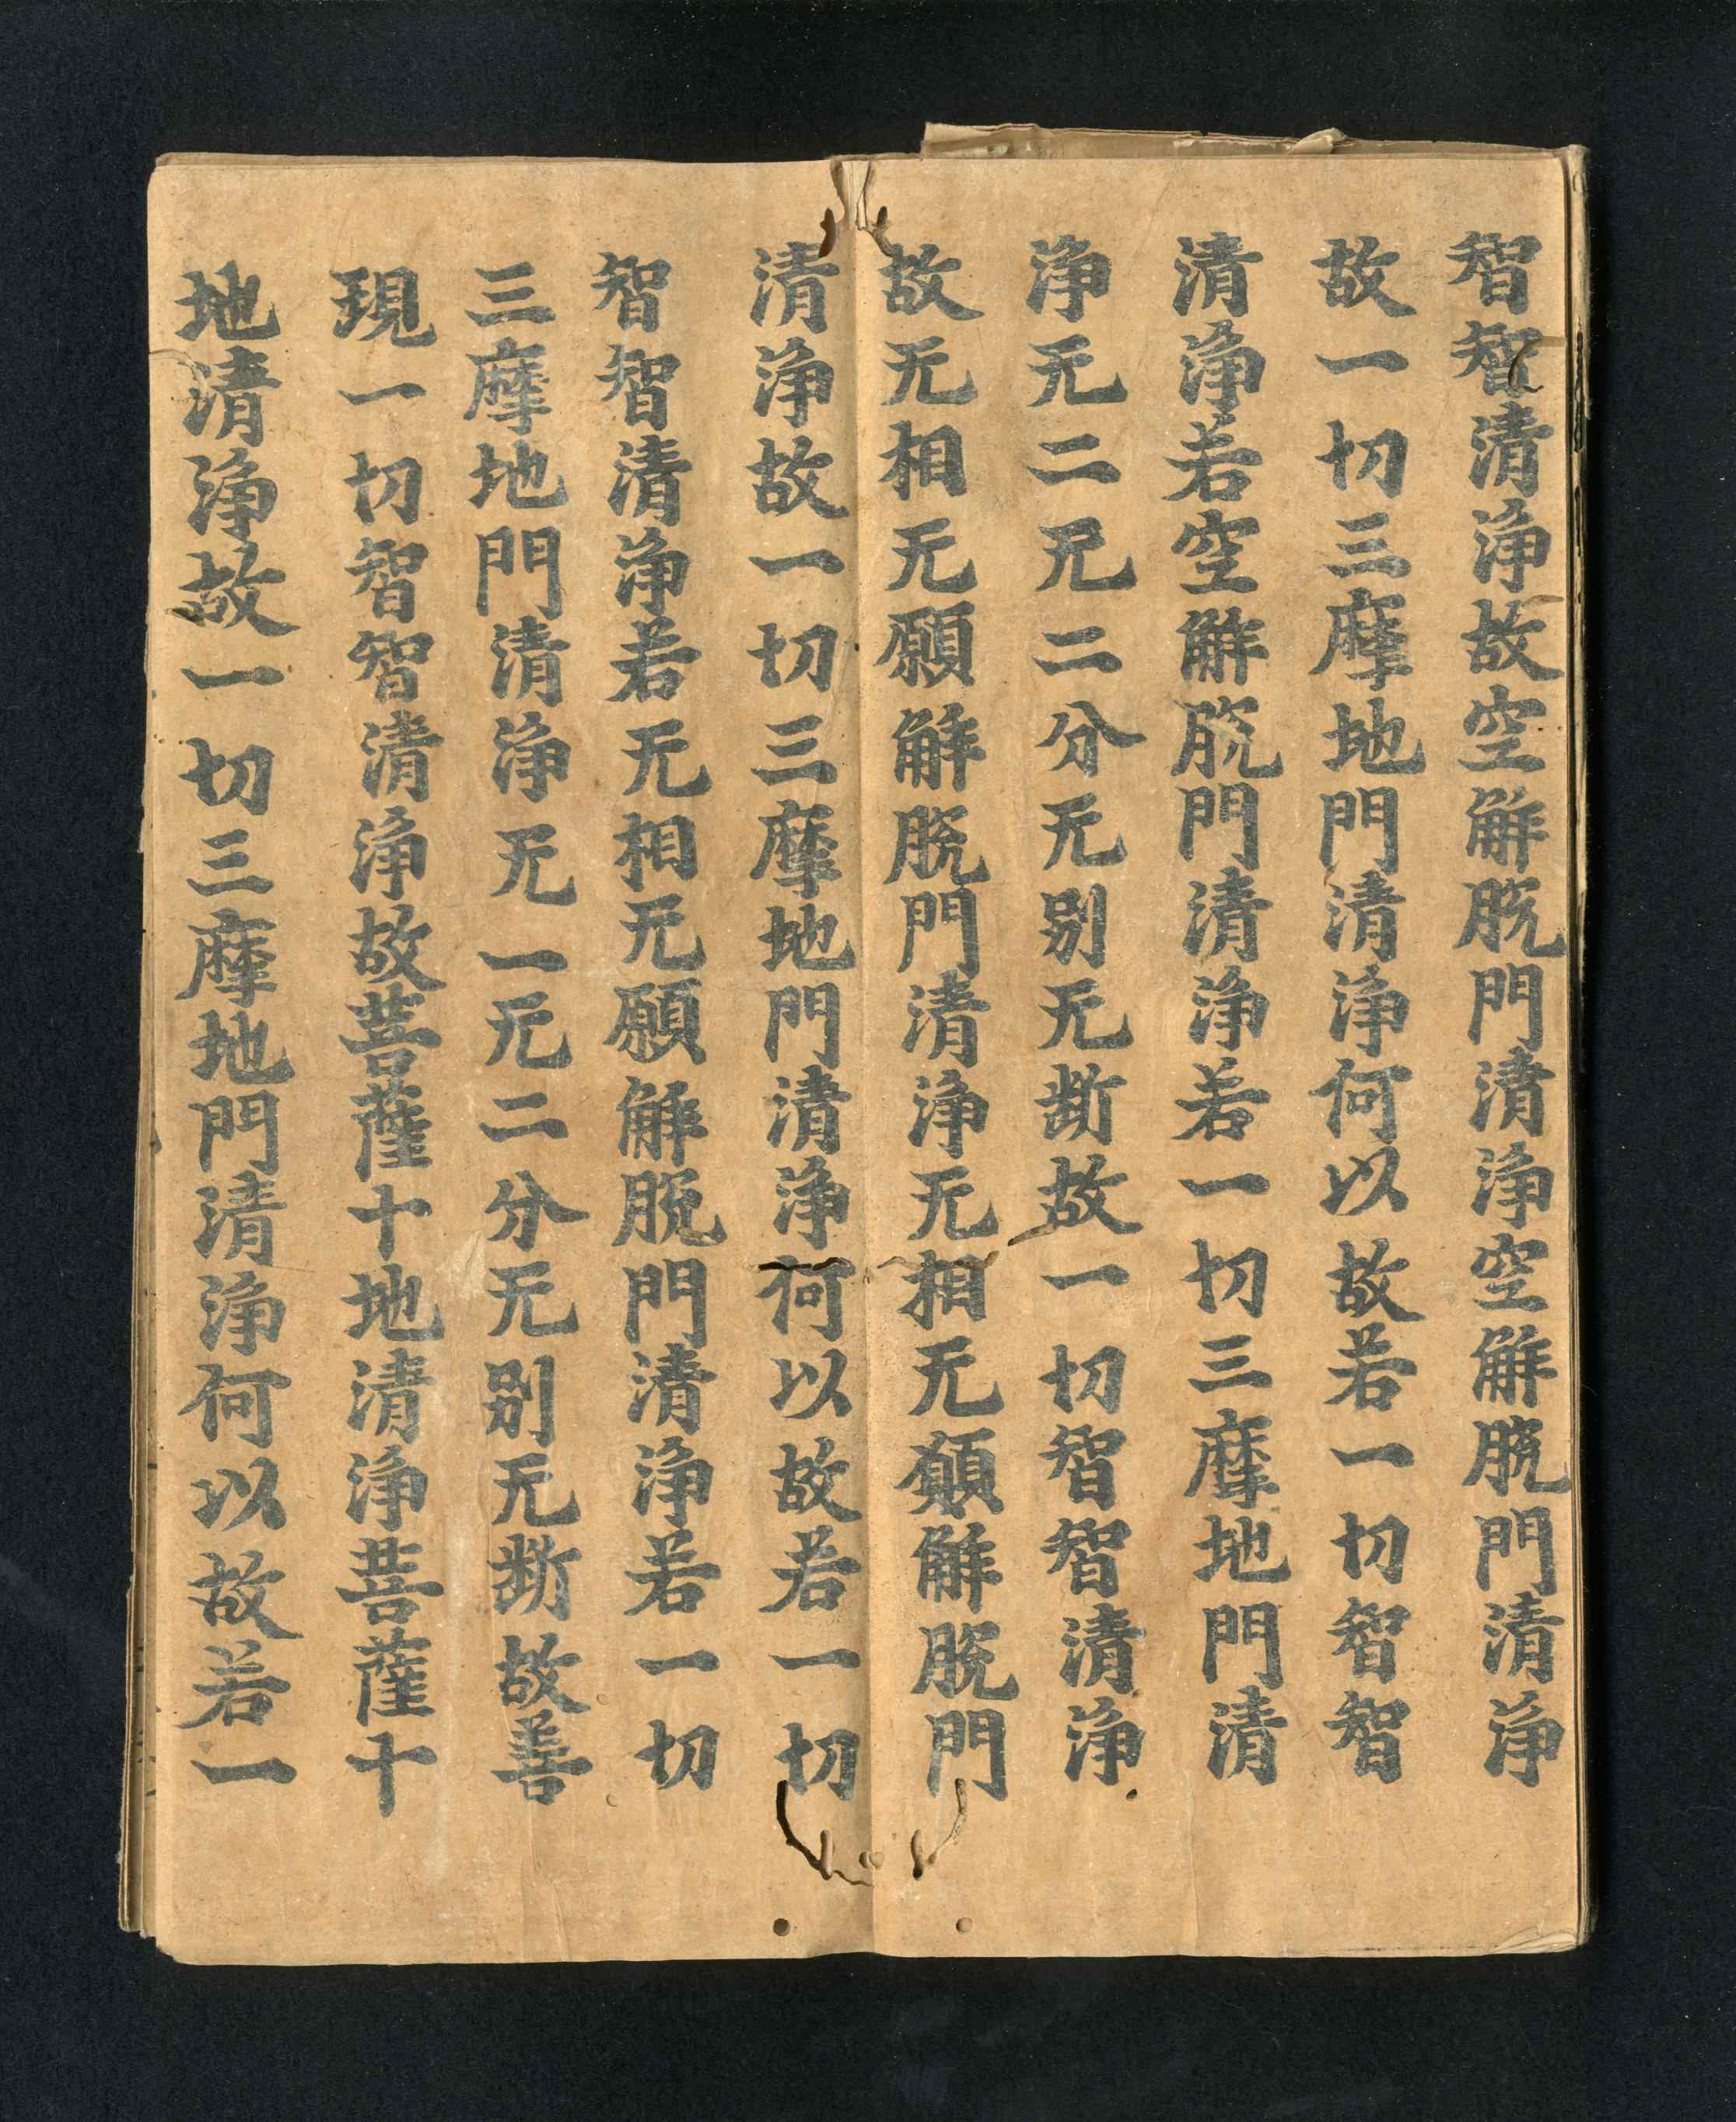 智智清淨故空解脫門清淨空解脫門清淨
故一切三摩地門清淨何以故若一切智智
清淨若空解脫門清淨若一切三摩地門清
淨无二无二分无別无断故一切智智清淨
故无相无願解脫門清淨无相无願解脫門
清淨故一切三摩地門清淨何以故若一切
智智清淨若无相无願解脫門清淨若一切
三摩地門清淨无一无二分无別无断故善
現一切智智清淨故菩薩十地清淨菩薩十
地清淨故一切三摩地門清淨何以故若一